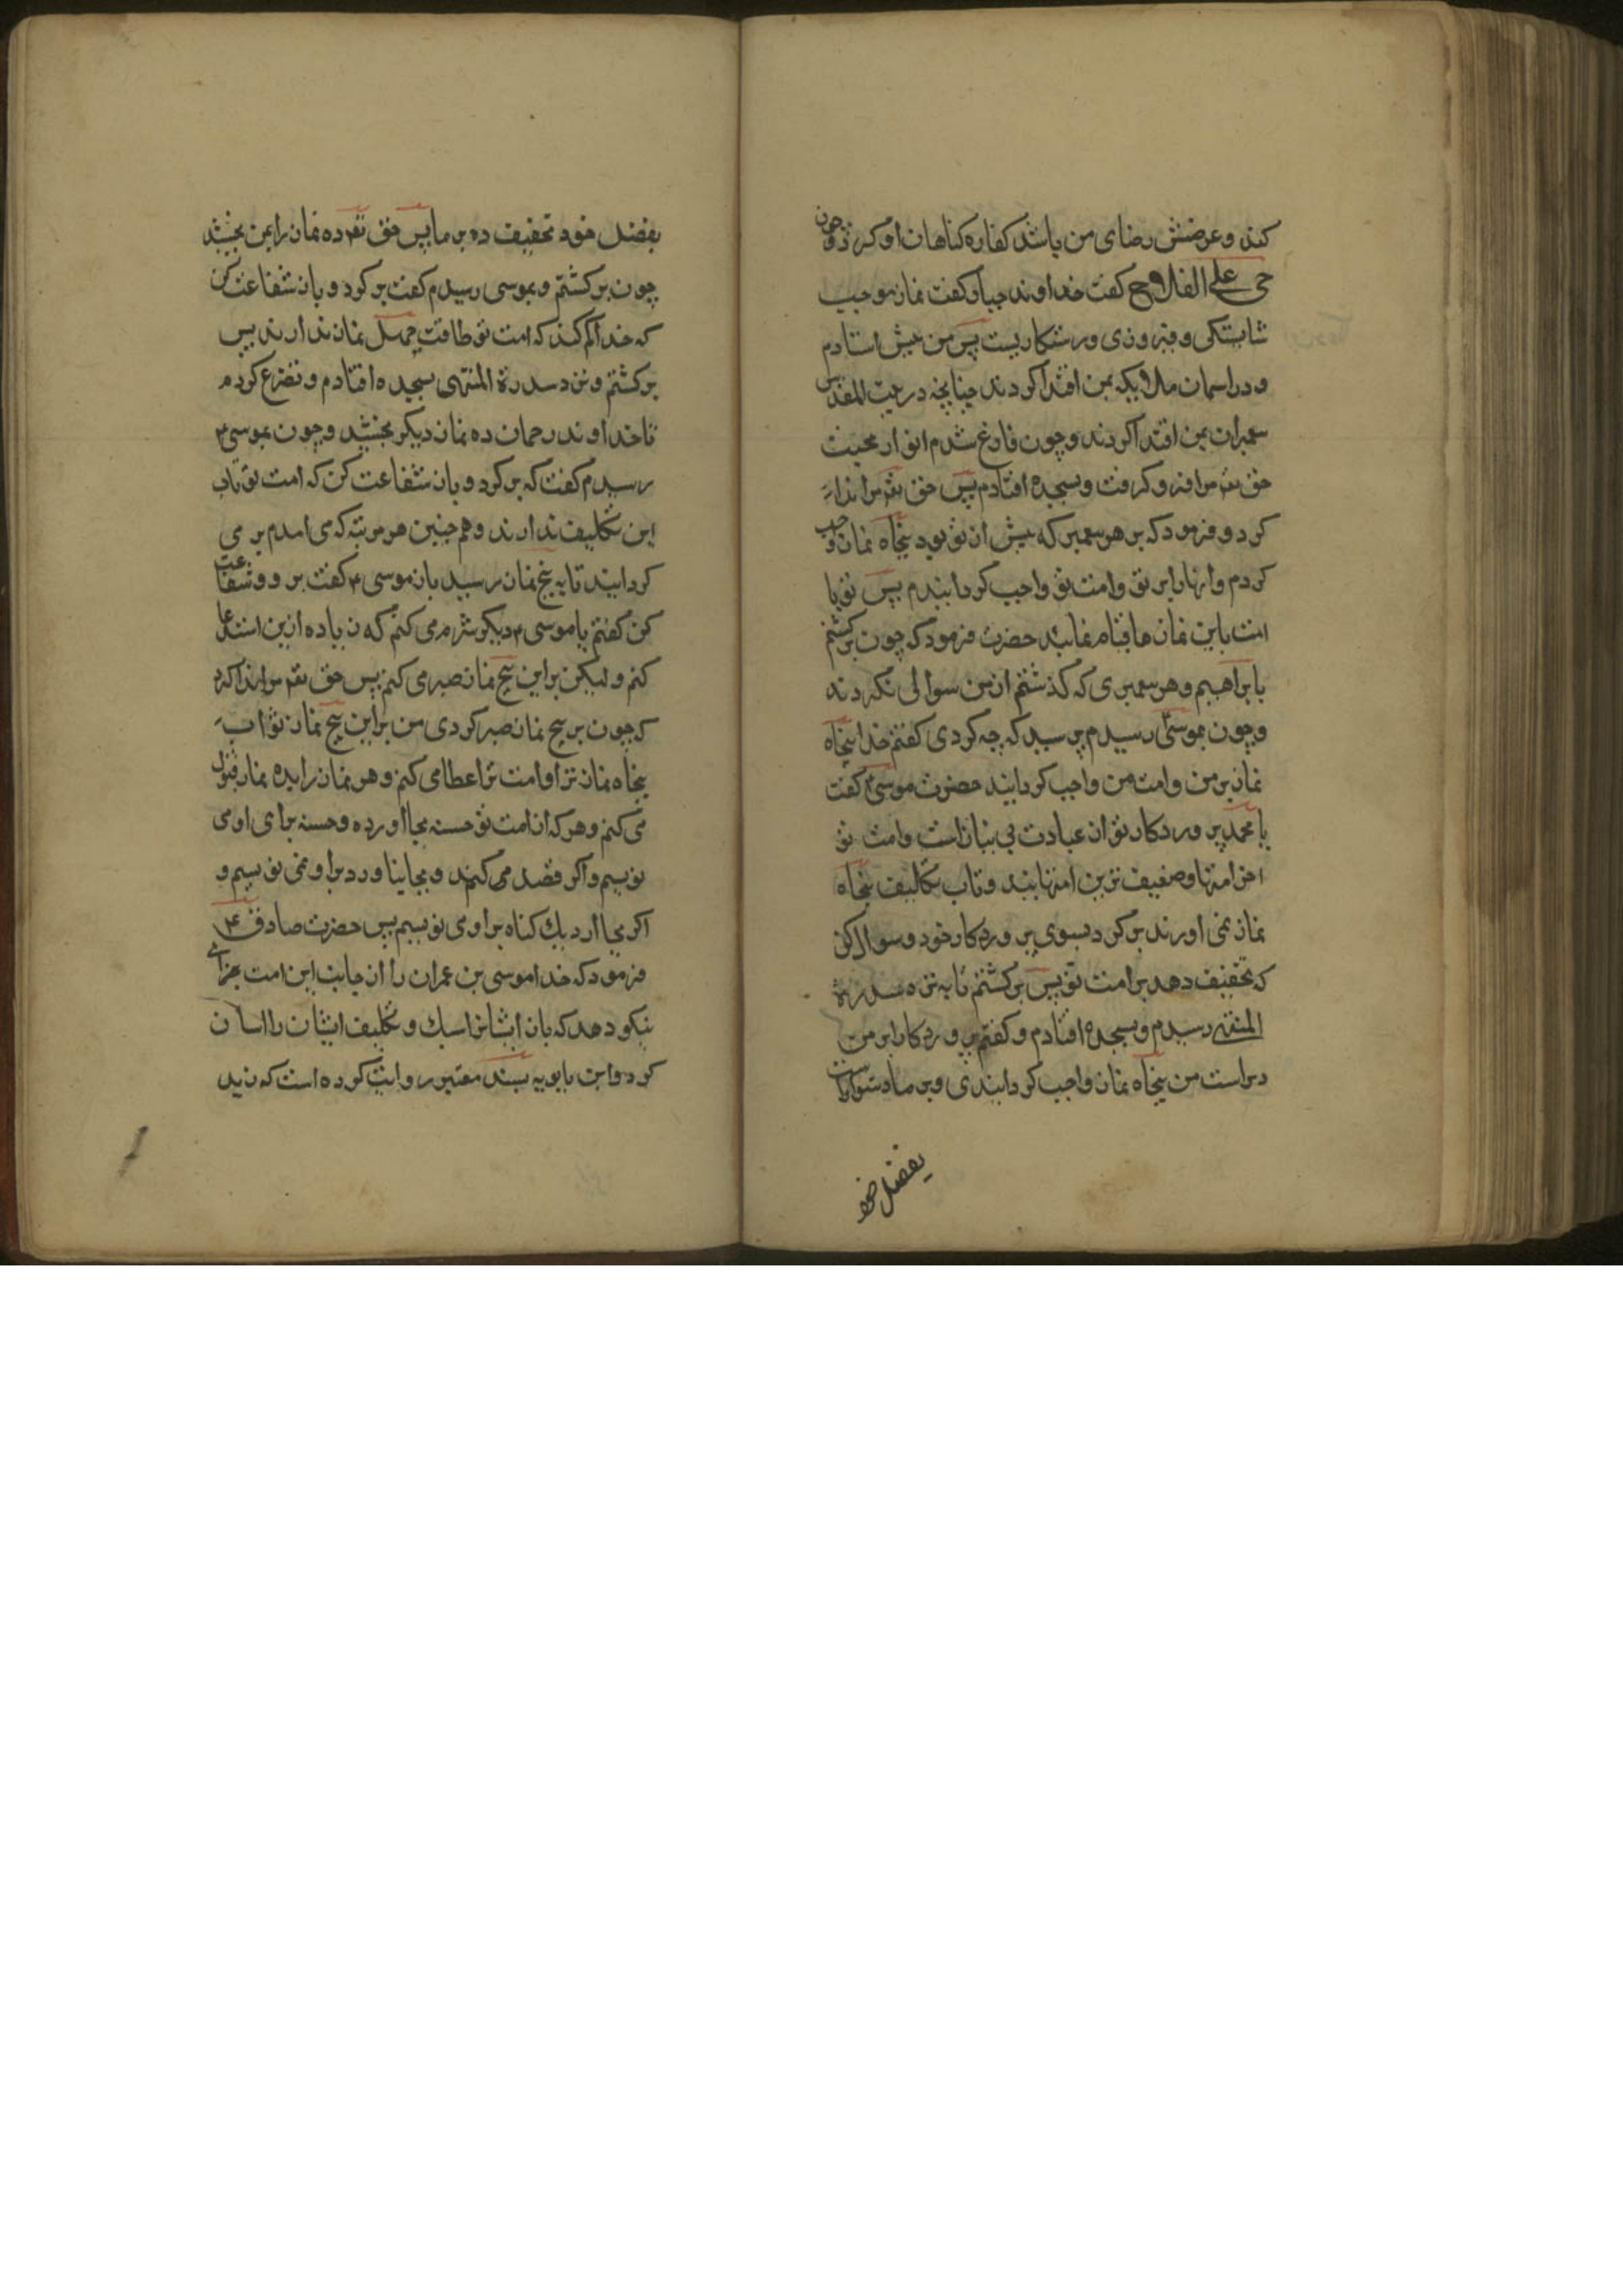 کند و غرضش رضای من باشد کفاره کناهان او کردد و چون
حی علی الفلاح کفت خداوند جبار کفت نماز موجب
شایستکی و فیروزی و رستکاریست پس من پیش استادم
و در اسمان ملایکه بمن اقتدا کردند چنانچه در بیت المقدس
پیغمبران بمن اقتدا کردند و چون فارغ شدم انوار محبت
حق تعه مرا فرو کرفت و بسجده افتادم پس حق تعه مرا ندا
کرد و فرمود که بر هر پیغمبر که پیش از تو بود پنجاه نماز واجب
کردم و انها را بر تو و امت تو واجب کردانیدم پس تو با
امت باین نمازها قیام نمائید حضرت فرمود که چون برکشتم
بابراهیم و هر پیغمبری که کذشتم از من سوالی نکردند
و چون بموسی رسیدم پرسید که چه کردی کفتم خدا پنجاه
نماز بر من و امت من واجب کردانید حضرت موسی ع کفت
یا محمد پروردکار تو از عبادت بی نیاز است و امت تو
اخر امتها و ضعیف ترین امتهایند و تاب تکلیف پنجاه
نماز نمی اورند برکرد بسوی پروردکار خود و سوال کن
که تخفیف دهد بر امت تو پس برکشتم تا بنزد سدرة
المنتهی رسیدم و بسجده افتادم و کفتم پروردکارا بر من
و بر امت من پنجاه نماز واجب کردانیدی و بر ما دشوار است
بفضل خود
بفضل خود تخفیف ده بر ما پس حق تعه ده نماز را بمن بخشید
چون برکشتم و بموسی رسیدم کفت برکرد و باز شفاعت کن
که خدا کم کند که امت تو طاقت چهل نماز ندارند پس
برکشتم و نزد سدرة المنتهی بسجده افتادم و تضرع کردم
تا خداوند رحمان ده نماز دیکر بخشید و چون بموسی ع
رسیدم کفت که برکرد و باز شفاعت کن که امت تو تاب
این تکلیف ندارند و همچنین هر مرتبه که می امدم بر می
کردانید تا به پنج نماز رسید باز موسی ع کفت برو و شفاعت
کن کفتم یا موسی ع دیکر شرم می کنم که زیاده ازین استدعا
کنم و لیکن بر این پنج نماز صبر می کنم پس حق تعه مرا ندا کرد
که چون بر پنج نماز صبر کردی من بر این پنج نماز ثواب
پنجاه نماز ترا و امت ترا عطا می کنم و هر نماز را بده نماز قبول
می کنم و هر که از امت تو حسنه بجا اورد ده حسنه برای او می
نویسم و اکر قصد می کنند و بجا نیاورد بر او نمی نویسم و
اکر بجا ارد یک کناه بر او می نویسم پس حضرت صادق ع
فرمود که خدا موسی بن عمران را از جانب این امت جزای
نیکو دهد که بار ایشانرا سبک و تکلیف ایشان را اسان
کرد و ابن بابویه بسند معتبر روایت کرده است که زید